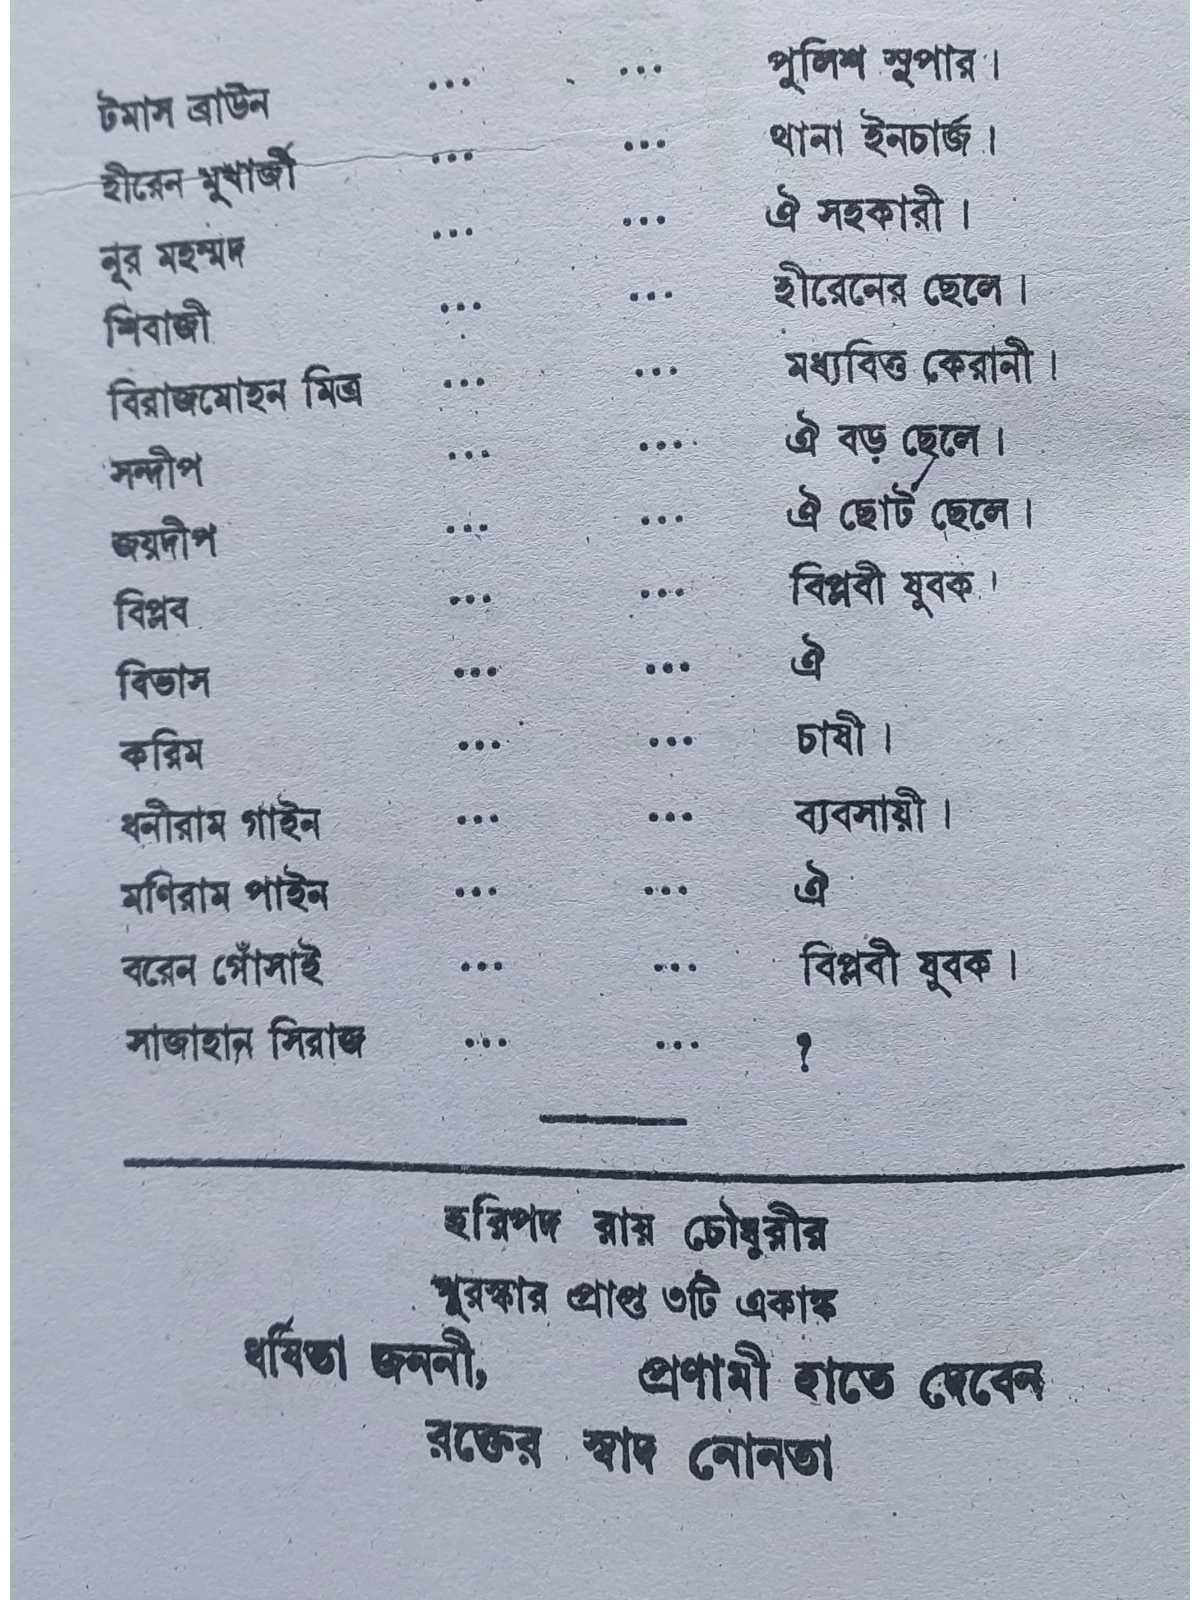 টমাস ব্রাউন ... ... পুলিশ সুপার।
হীরেন মুখার্জী ... ... থানা ইনচার্জ।
নূর মহম্মদ ... ... ঐ সহকারী।
শিবাজী ... ... হীরেনের ছেলে।
বিরাজমোহন মিত্র ... ... মধ্যবিত্ত কেরানী।
সন্দীপ ... ... ঐ বড় ছেলে।
জয়দীপ ... ... ঐ ছোট ছেলে।
বিপ্লব ... ... বিপ্লবী যুবক।
বিভাস ... ... ঐ
করিম ... ... চাষী।
ধনীরাম গাইন ... ... ব্যবসায়ী।
মণিরাম পাইন ... ... ঐ
বরেন গোঁসাই ... ... বিপ্লবী যুবক।
সাজাহান সিরাজ ... ... ?
হরিপদ রায় চৌধুরীর
পুরস্কার প্রাপ্ত ৩টি একাঙ্ক
ধর্ষিতা জননী, প্রণামী হাতে দেবেন
রক্তের স্বাদ নোনতা